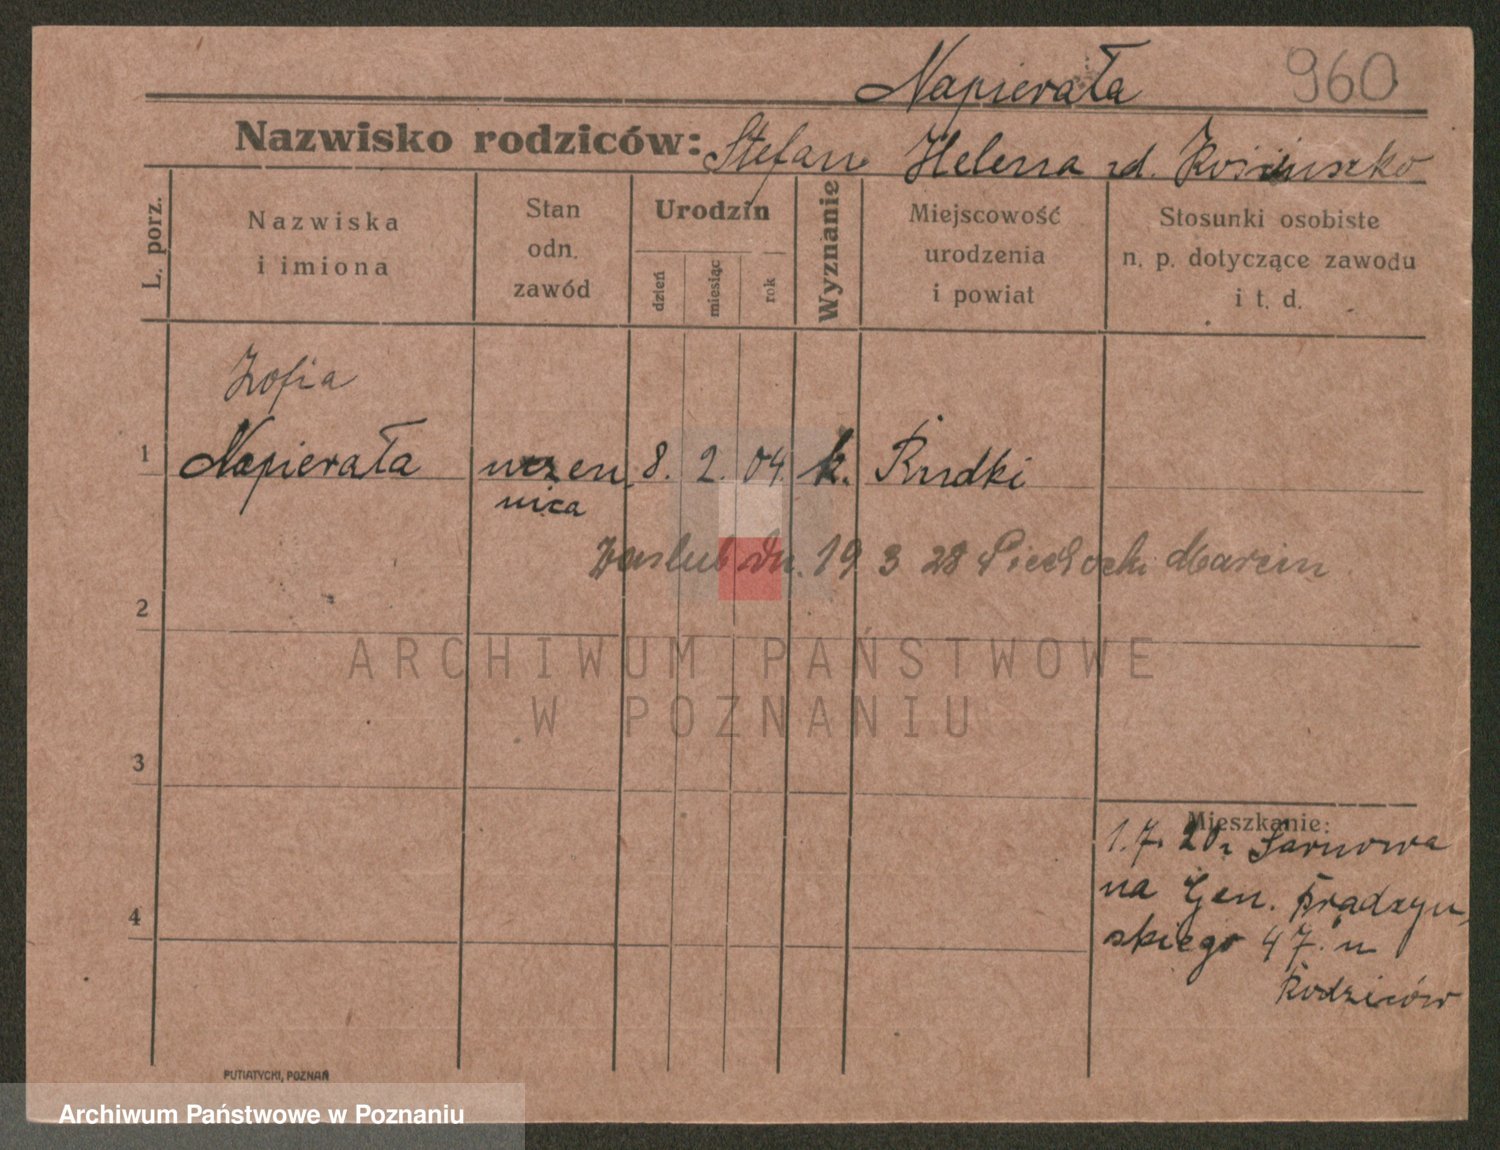 Napierała 960
Nazwisko rodziców: Stefan Helena zd. Kościuszko
L. porz.
Nazwiska
i imiona
Stan
odn.
zawód
Urodzin
dzień
miesiąc
rok
Wyznanie
Miejscowość
urodzenia
i powiat
Stosunki osobiste
n. p. dotyczące zawodu
i t. d.
Zofia
1 Napierała uczen 8. 2. 04. k. Rudki
nica
Zaślub dn. 19 3 28 Marcin
2
ARCHIWUM PAŃSTWOWE
W POZNANIU
3
Mieszkanie:
1. 7. 20r Sarnowa
na Gen. Prądzyń
skiego 47. u
Rodziców
4
PUTIATYCKI, POZNAŃ
Archiwum Państwowe w Poznaniu